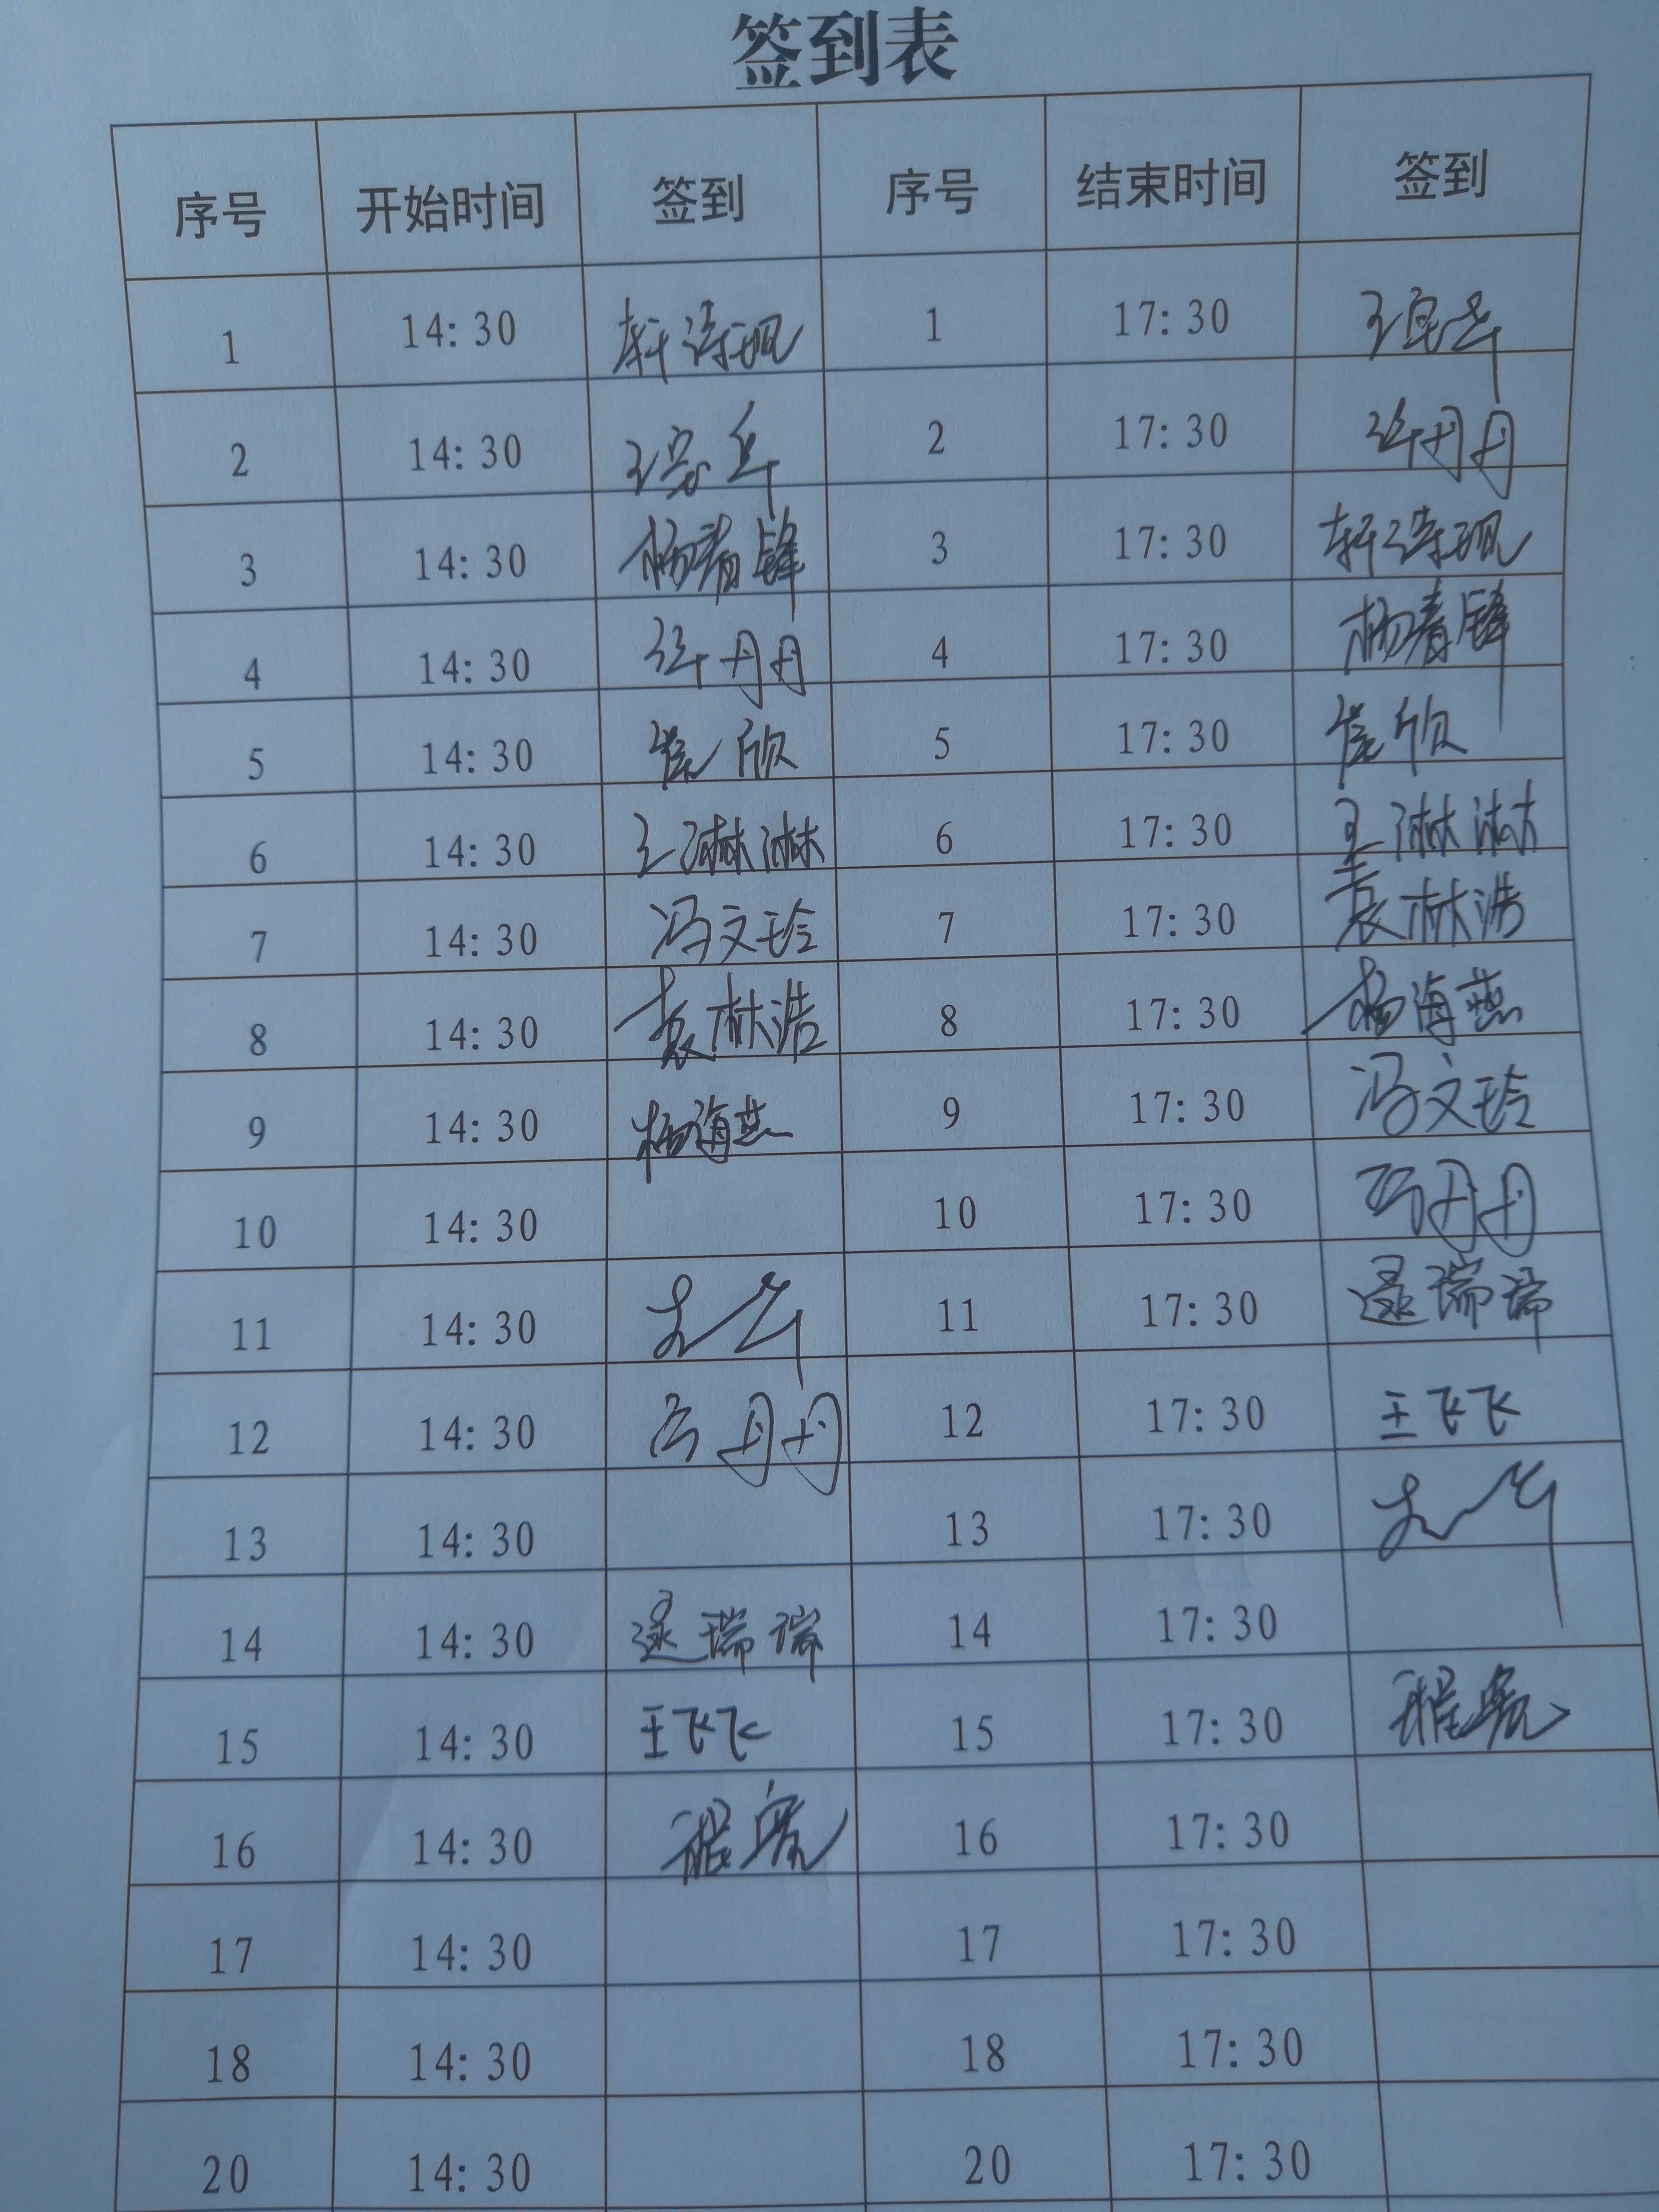 签到表
序号 开始时间 签到 序号 结束时间 签到
1 14:30 轩诗珮 1 17:30
2 14:30 2 17:30 许丹丹
3 14:30 杨青锋 3 17:30 轩诗珮
4 14:30 许丹丹 4 17:30 杨青锋
5 14:30 崔欣 5 17:30 崔欣
6 14:30 王淋淋 6 17:30 王淋淋
7 14:30 冯文玲 7 17:30 袁林浩
8 14:30 袁林浩 8 17:30 杨海燕
9 14:30 杨海燕 9 17:30 冯文玲
10 14:30 10 17:30 丹丹
11 14:30 11 17:30 逯瑞瑞
12 14:30 丹丹 12 17:30 王飞飞
13 14:30 13 17:30
14 14:30 逯瑞瑞 14 17:30
15 14:30 王飞飞 15 17:30
16 14:30 16 17:30
17 14:30 17 17:30
18 14:30 18 17:30
20 14:30 20 17:30